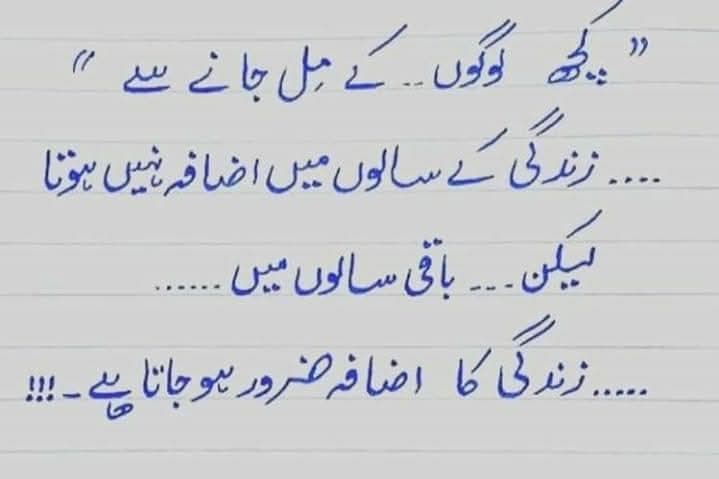 ” کچھ لوگوں .. کے مِل جانے سے “
.... زندگی کے سالوں میں اضافہ نہیں ہوتا
لیکن ... باقی سالوں میں ......
..... زندگی کا اضافہ ضرور ہو جاتا ہے ۔ !!!